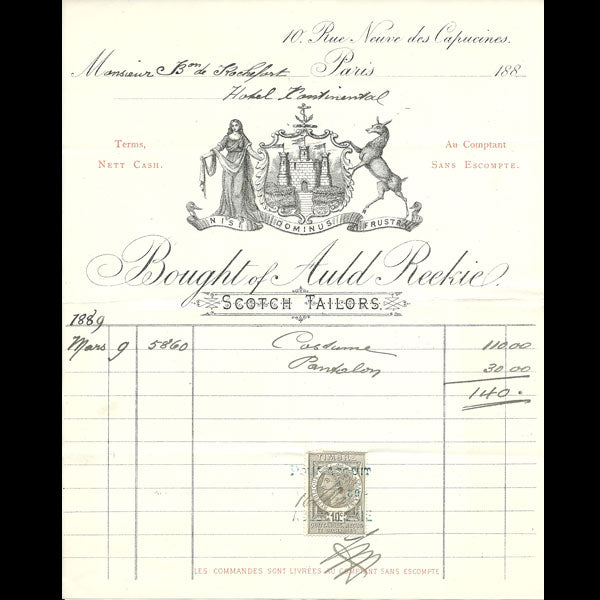 10. Rue Neuve des Capucines.
Monsieur Bon de Rochefort Paris 188
Hotel Continental
Terms, Au Comptant
Nett Cash. Sans Escompte.
NISI DOMINUS FRUSTRA
Bought of Auld Reekie.
Scotch Tailors.
1889
Mars 9 5860 Costume 110.00
Pantalon 30.00
140.
10c
LES COMMANDES SONT LIVRÉES AU COMPTANT SANS ESCOMPTE